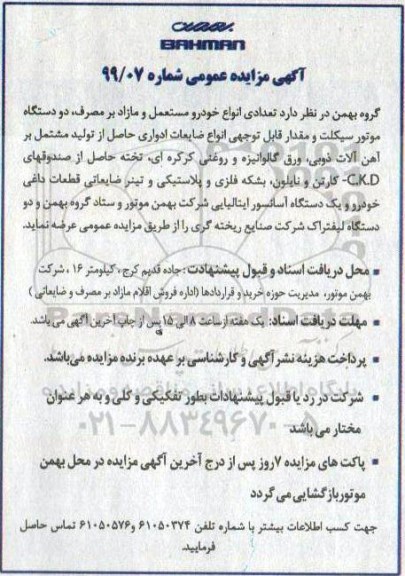 بهمن
BAHMAN
آگهی مزایده عمومی شماره ۹۹/۰۷
گروه بهمن در نظر دارد تعدادی انواع خودرو مستعمل و مازاد بر مصرف، دو دستگاه
موتور سیکلت و مقدار قابل توجهی انواع ضایعات ادواری حاصل از تولید مشتمل بر
آهن آلات ذوبی، ورق گالوانیزه و روغنی کرکره ای، تخته حاصل از صندوقهای
C.K.D- کارتن و نایلون، بشکه فلزی و پلاستیکی و تینر ضایعاتی قطعات داغی
خودرو و یک دستگاه آسانسور ایتالیایی شرکت بهمن موتور و ستاد گروه بهمن و دو
دستگاه لیفتراک شرکت صنایع ریخته گری را از طریق مزایده عمومی عرضه نماید.
▪ محل دریافت اسناد و قبول پیشنهادات : جاده قدیم کرج ، کیلومتر ۱۶ ، شرکت
بهمن موتور، مدیریت حوزه خرید و قراردادها (اداره فروش اقلام مازاد بر مصرف و ضایعاتی )
▪ مهلت دریافت اسناد: یک هفته از ساعت ۸ الی ۱۵ پس از چاپ آخرین آگهی می باشد.
▪ پرداخت هزینه نشر آگهی و کارشناسی بر عهده برنده مزایده می‌باشد.
▪ شرکت در رد یا قبول پیشنهادات بطور تفکیکی و کلی و به هر عنوان
مختار می باشد
۰۲۱-۸۸۳۴۹۶۷۰-۵
▪ پاکت های مزایده ۷ روز پس از درج آخرین آگهی مزایده در محل بهمن
موتور بازگشایی می گردد
جهت کسب اطلاعات بیشتر با شماره تلفن ۶۱۰۵۰۳۷۴ و ۶۱۰۵۰۵۷۶ تماس حاصل
فرمایید.